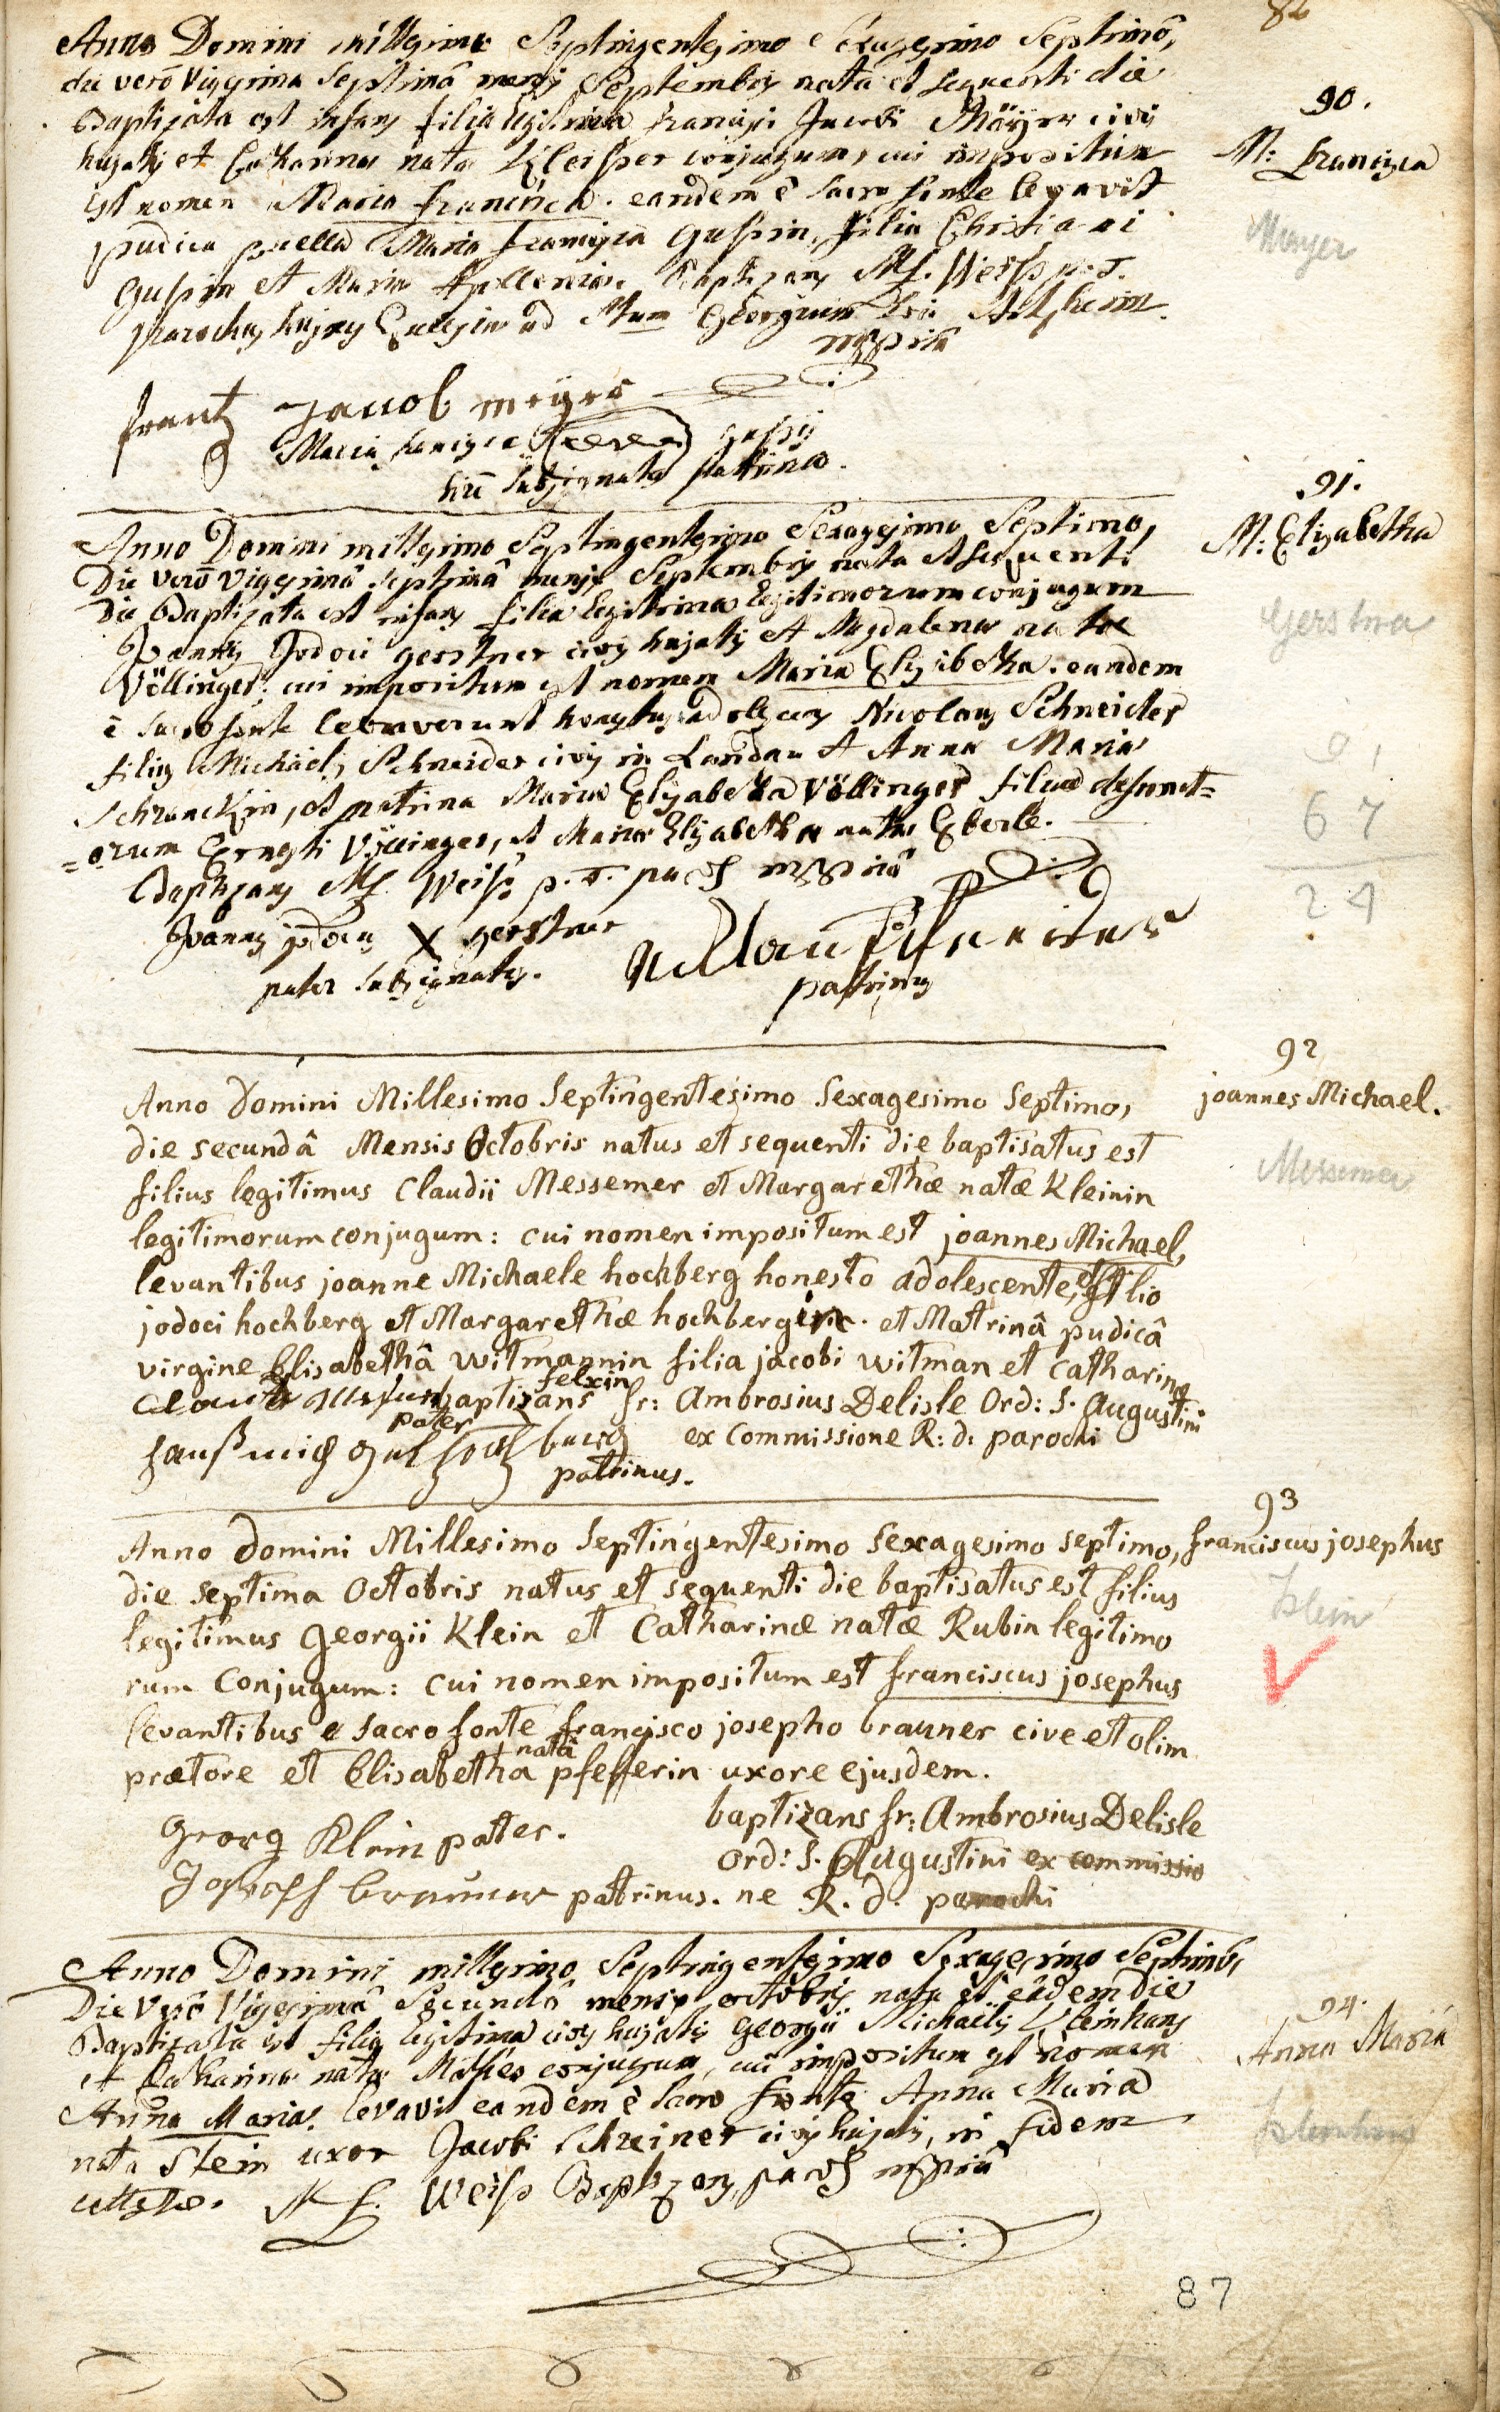 86
Anno Domini millesimo Septingentesimo Sexagesimo Septimô,
die verô vigesima Septimâ mensis Septembris nata et sequenti die
Baptizata est infans filia legitima Francisci Jacobi Mäyer civis
hujatis et Catharinae nata Kleisser conjugum, cui impositum
est nomen Maria Francisca. eandem è sacro fonte levavit
pudica puella Maria Francisca Gussin, filia Christiani
Gussin et Maria Apolloniae. Baptizans Mf. Weiss p. T.
parochus hujus Ecclesiae ad Stum Georgium
mppriâ
90.
M: Francisca
Mayer
frantz Jacob meyer
Maria francisca gussin
hic subsignata Matrina.
Anno Domini millesimo Septingentesimo Sexagesimo Septimo,
Die verô Vigesimâ septimâ mensis Septembris nata et sequenti
die Baptizata est infans filia legitima legitimorum conjugum
Joannis Jodoci gerstner civis hujatis et Magdalenae natae
Völlinger: cui impositum est nomen Maria Elisabetha. eandem
è sacro fonte levaverunt honestus adolescens Nicolaus Schneider
filius Michaelis Schneider civis in Landau et Annae Mariae
Schranckin, et matrina Maria Elisabetha Völlinger filia defunct=
=orum Ernesti Völlinger, et Maria Elisabetha natae Eberle.
Baptizans Mf. Weiss p. T. paroch mppriâ
91.
M: Elisabetha
Gerstner
67
24
Joannes jodocus X gerstner
pater subsignatus.
patrinus
Anno Domini Millesimo Septingentesimo Sexagesimo Septimo,
die secundâ Mensis Octobris natus et sequenti die baptisatus est
filius legitimus Claudii Messemer et Margarethæ natæ Kleinin
legitimorum conjugum: cui nomen impositum est joannes Michael,
levantibus joanne Michaele hochberg honesto adolescente, filio
jodoci hochberg et Margarethæ hochbergin. et Matrinâ pudicâ
virgine Elisabethâ witmannin filia jacobi witman et catharina
felxin
baptizans fr: Ambrosius Delisle Ord: S. Augustini
pater
ex Commissione R: d: parochi
patrinus.
92
joannes Michael.
Messemer
Anno domini Millesimo Septingentesimo Sexagesimo septimo,
die septima Octobris natus et sequenti die baptisatus est filius
legitimus georgii Klein et Catharinæ natæ Rubin legitimo
rum Conjugum: cui nomen impositum est franciscus josephus
levantibus e sacro fonte francisco josepho brauner cive et olim
natâ
prætore et Elisabetha pfefferin uxore ejusdem.
93
franciscus josephus
Klein
baptizans fr: Ambrosius Delisle
Georg Klein pater.
Ord: S. Augustini ex commissio
Joseph brauner patrinus. ne R. d. parochi
Anno Domini millesimo Septingentesimo Sexagesimo Septimô,
Die verô Vigesimâ Secundâ mensis octobris nata et eâdem die
Baptizata est filia legitima civis hujatis Georgii Michaelis Kleinhans
et Catharinae nata conjugum, cui impositum est nomen
Anna Maria. levavit eandem è sacro fonte Anna Maria
nata Stein uxor Jacobi Schreiner civis hujatis, in fidem
attestor. Mf. Weiss Baptizans paroch mppriâ
94.
Anna Maria
Kleinhans
87